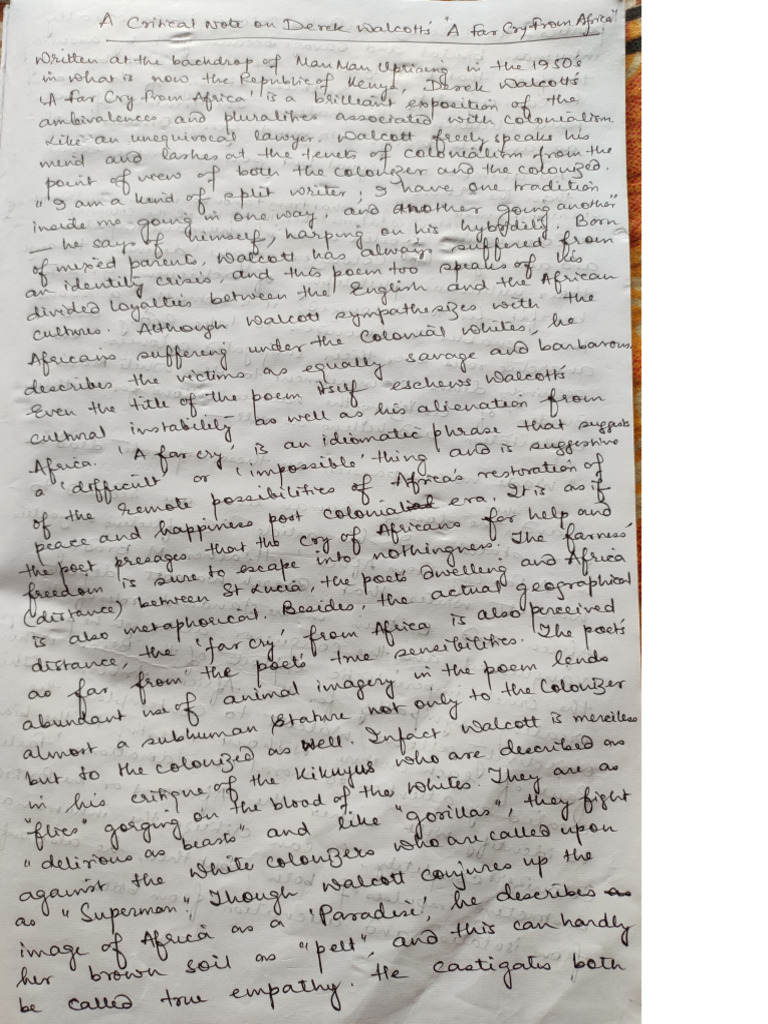 A Critical Note on Derek Walcott's "A Far Cry From Africa"
Written at the backdrop of Mau Mau Uprising in the 1950's
in what is now the Republic of Kenya, Derek Walcott's
'A Far Cry From Africa' is a brilliant exposition of the
ambivalences and pluralities associated with colonialism.
Like an unequivocal lawyer, Walcott freely speaks his
mind and lashes at the tenets of colonialism from the
point of view of both the colonizer and the colonized.
"I am a kind of split writer; I have one tradition
inside me going in one way, and another going another"
— he says of himself, harping on his hybridity. Born
of mixed parents, Walcott has always suffered from
an identity crisis, and this poem too speaks of his
divided loyalties between the English and the African
cultures. Although Walcott sympathesizes with the
Africans suffering under the colonial whites, he
describes the victims as equally savage and barbarous.
Even the title of the poem itself eschews Walcott's
cultural instability as well as his alienation from
Africa. 'A far cry' is an idiomatic phrase that suggests
a 'difficult' or 'impossible' thing and is suggestive
of the remote possibilities of Africa's restoration of
peace and happiness post colonial era. It is as if
the poet presages that the cry of Africans for help and
freedom is sure to escape into nothingness. The farness'
(distance) between St Lucia, the poet's dwelling and Africa
is also metaphorical. Besides, the actual geographical
distance, the 'far cry' from Africa is also perceived
as far from the poet's true sensibilities. The poet's
abundant use of animal imagery in the poem lends
almost a subhuman stature not only to the Colonizer
but to the colonized as well. Infact Walcott is merciless
in his critique of the Kikuyus who are described as
"flies" gorging on the blood of the whites. They are as
"delirious as beasts" and like "gorillas", they fight
against the white colonizers who are called upon
as "Superman". Though Walcott conjures up the
image of Africa as a 'Paradise', he describes as
her brown soil as "pelt", and this can hardly
be called true empathy. He castigates both